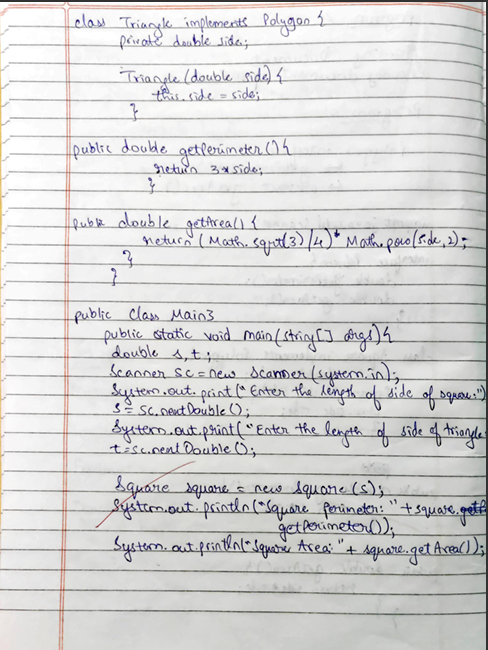 class Triangle implements Polygon {
private double side;
Triangle (double side) {
this.side = side;
}
public double getPerimeter () {
return 3 * side;
}
public double getArea () {
return (Math.sqrt(3) / 4) * Math.pow(side, 2);
}
}
public class Main3
public static void main (string [] args) {
double s, t ;
Scanner sc = new scanner (system.in);
System.out.print (" Enter the length of side of square:")
s = sc.nextDouble ();
System.out.print (" Enter the length of side of triangle
t = sc.nextDouble ();
Square square = new square (s);
System.out.println ("Square Perimeter: " + square.
getPerimeter ());
System.out.println ("Square Area: " + square.getArea ());